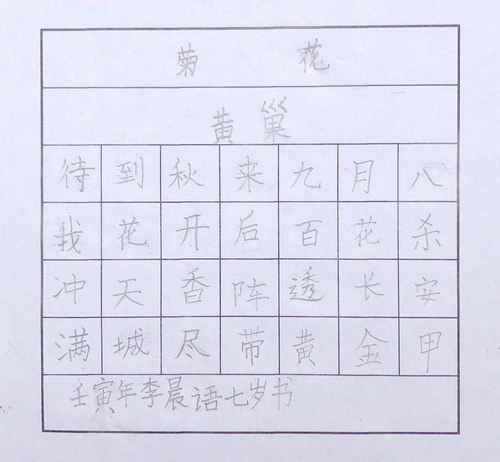 菊 花
黄 巢
待到秋来九月八
我花开后百花杀
冲天香阵透长安
满城尽带黄金甲
壬寅年李晨语七岁书